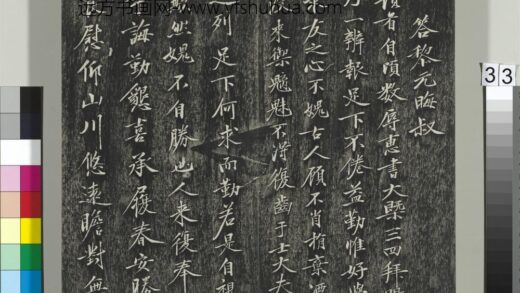 远方书画网 www.yfshuhua.com
答黎元晦叔
者自頃数辱惠書大懸三四拜
一辨報足下不倦益勤惟好
友之心不媿古人顧不肖捐棄
來禦魑魅不得復齒于士大夫
列足下何求而勤若是自視
然媿不自勝也人來復奉
誨勤懇喜承履春安勝
慰仰山川悠遠瞻對無
33